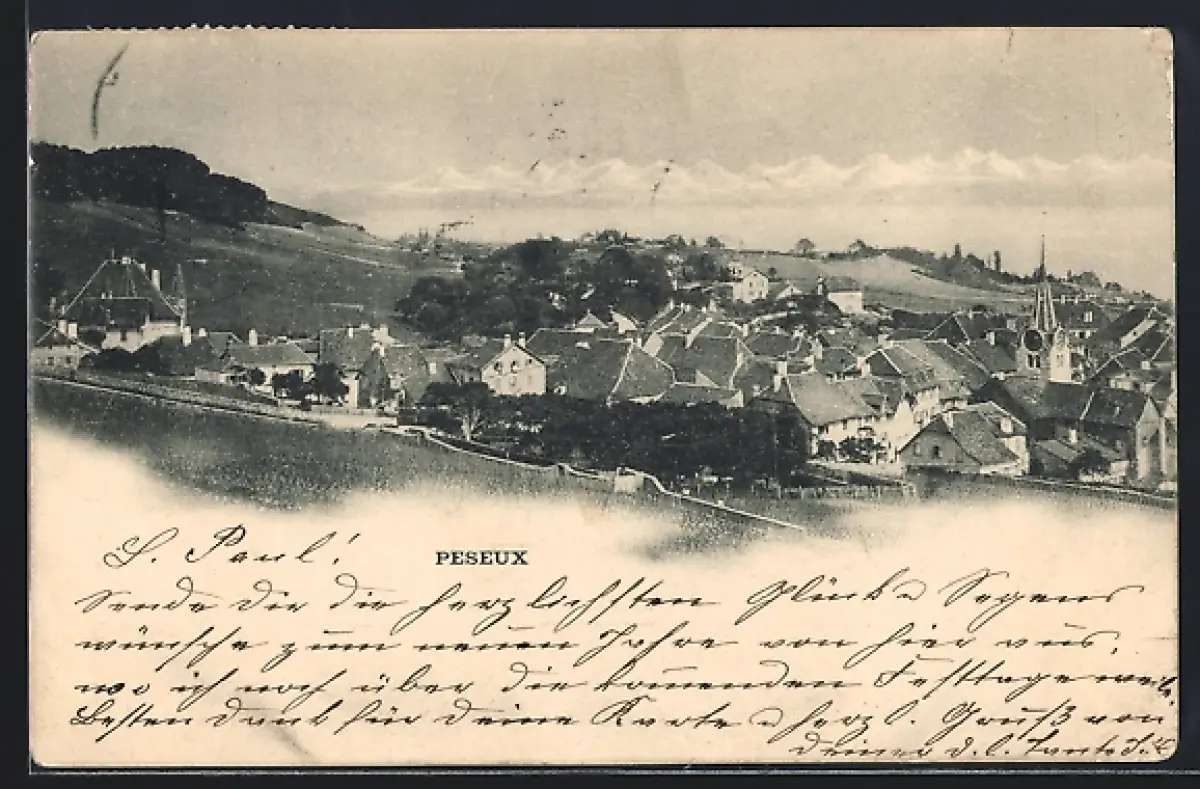 L. Paul!
PESEUX
Sende dir die herzlichsten Glück u Segens
wünsche zum neuen Jahre von hier aus,
wo ich noch über die kommenden Festtage weile.
Besten Dank für deine Karte u herzl. Gruß von
deiner d. l. Tante